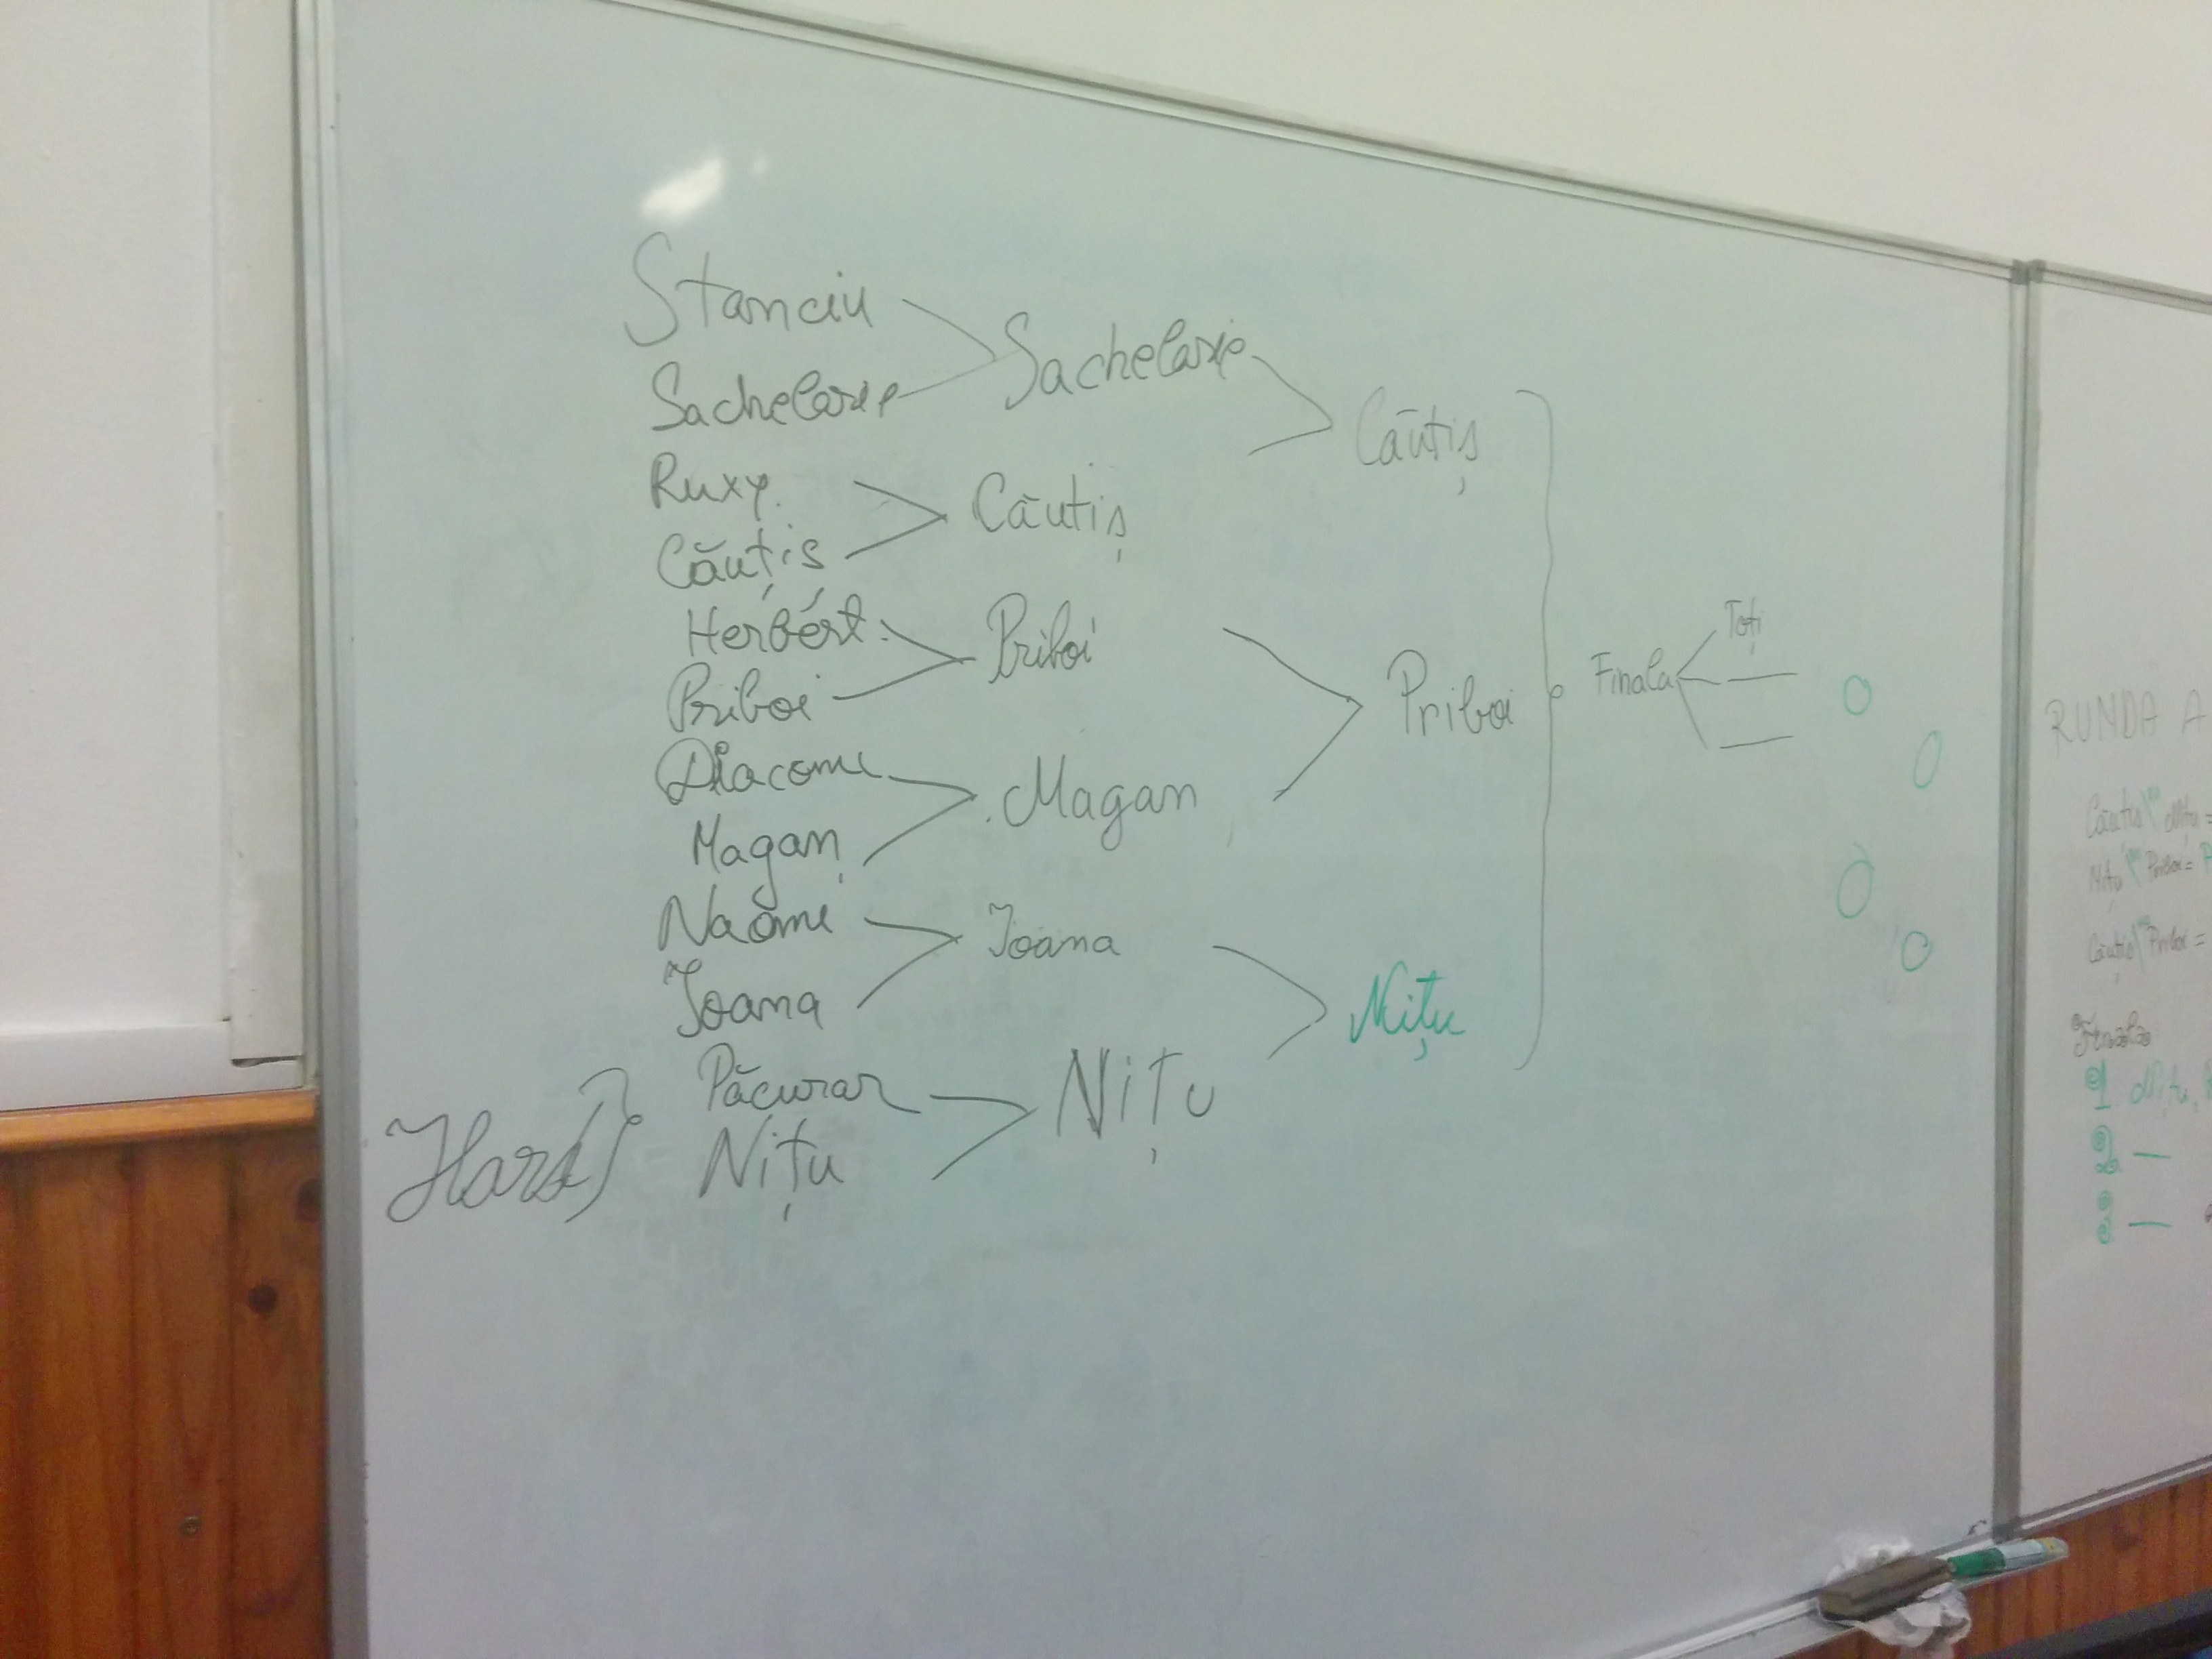 Stanciu
Sachelarie
Sachelarie
Ruxy.
Căutiș
Căuțis
Căutiș
Herbért.
Priboi
Priboi
Priboi
Diacome
Magan
Magan
Naomi
Ioana
Ioana
Nițu
Păcurar
Nițu
Nițu
Finala
Toți
RUNDA A
Căutiș \ Nițu =
Nițu \ Priboi = P
Căutiș \ Priboi =
Finala
1 Nițu,
2 —
3 —